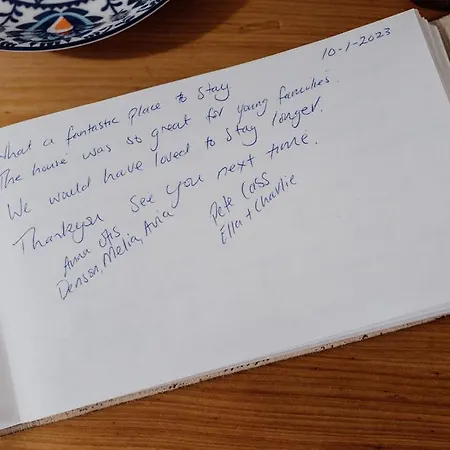 10-1-2023
What a fantastic place to stay
The house was so great for young families.
We would have loved to stay longer.
Thankyou See you next time.
Anna Otis Pete Cass
Denson, Melia, Avia Ella + Charlie